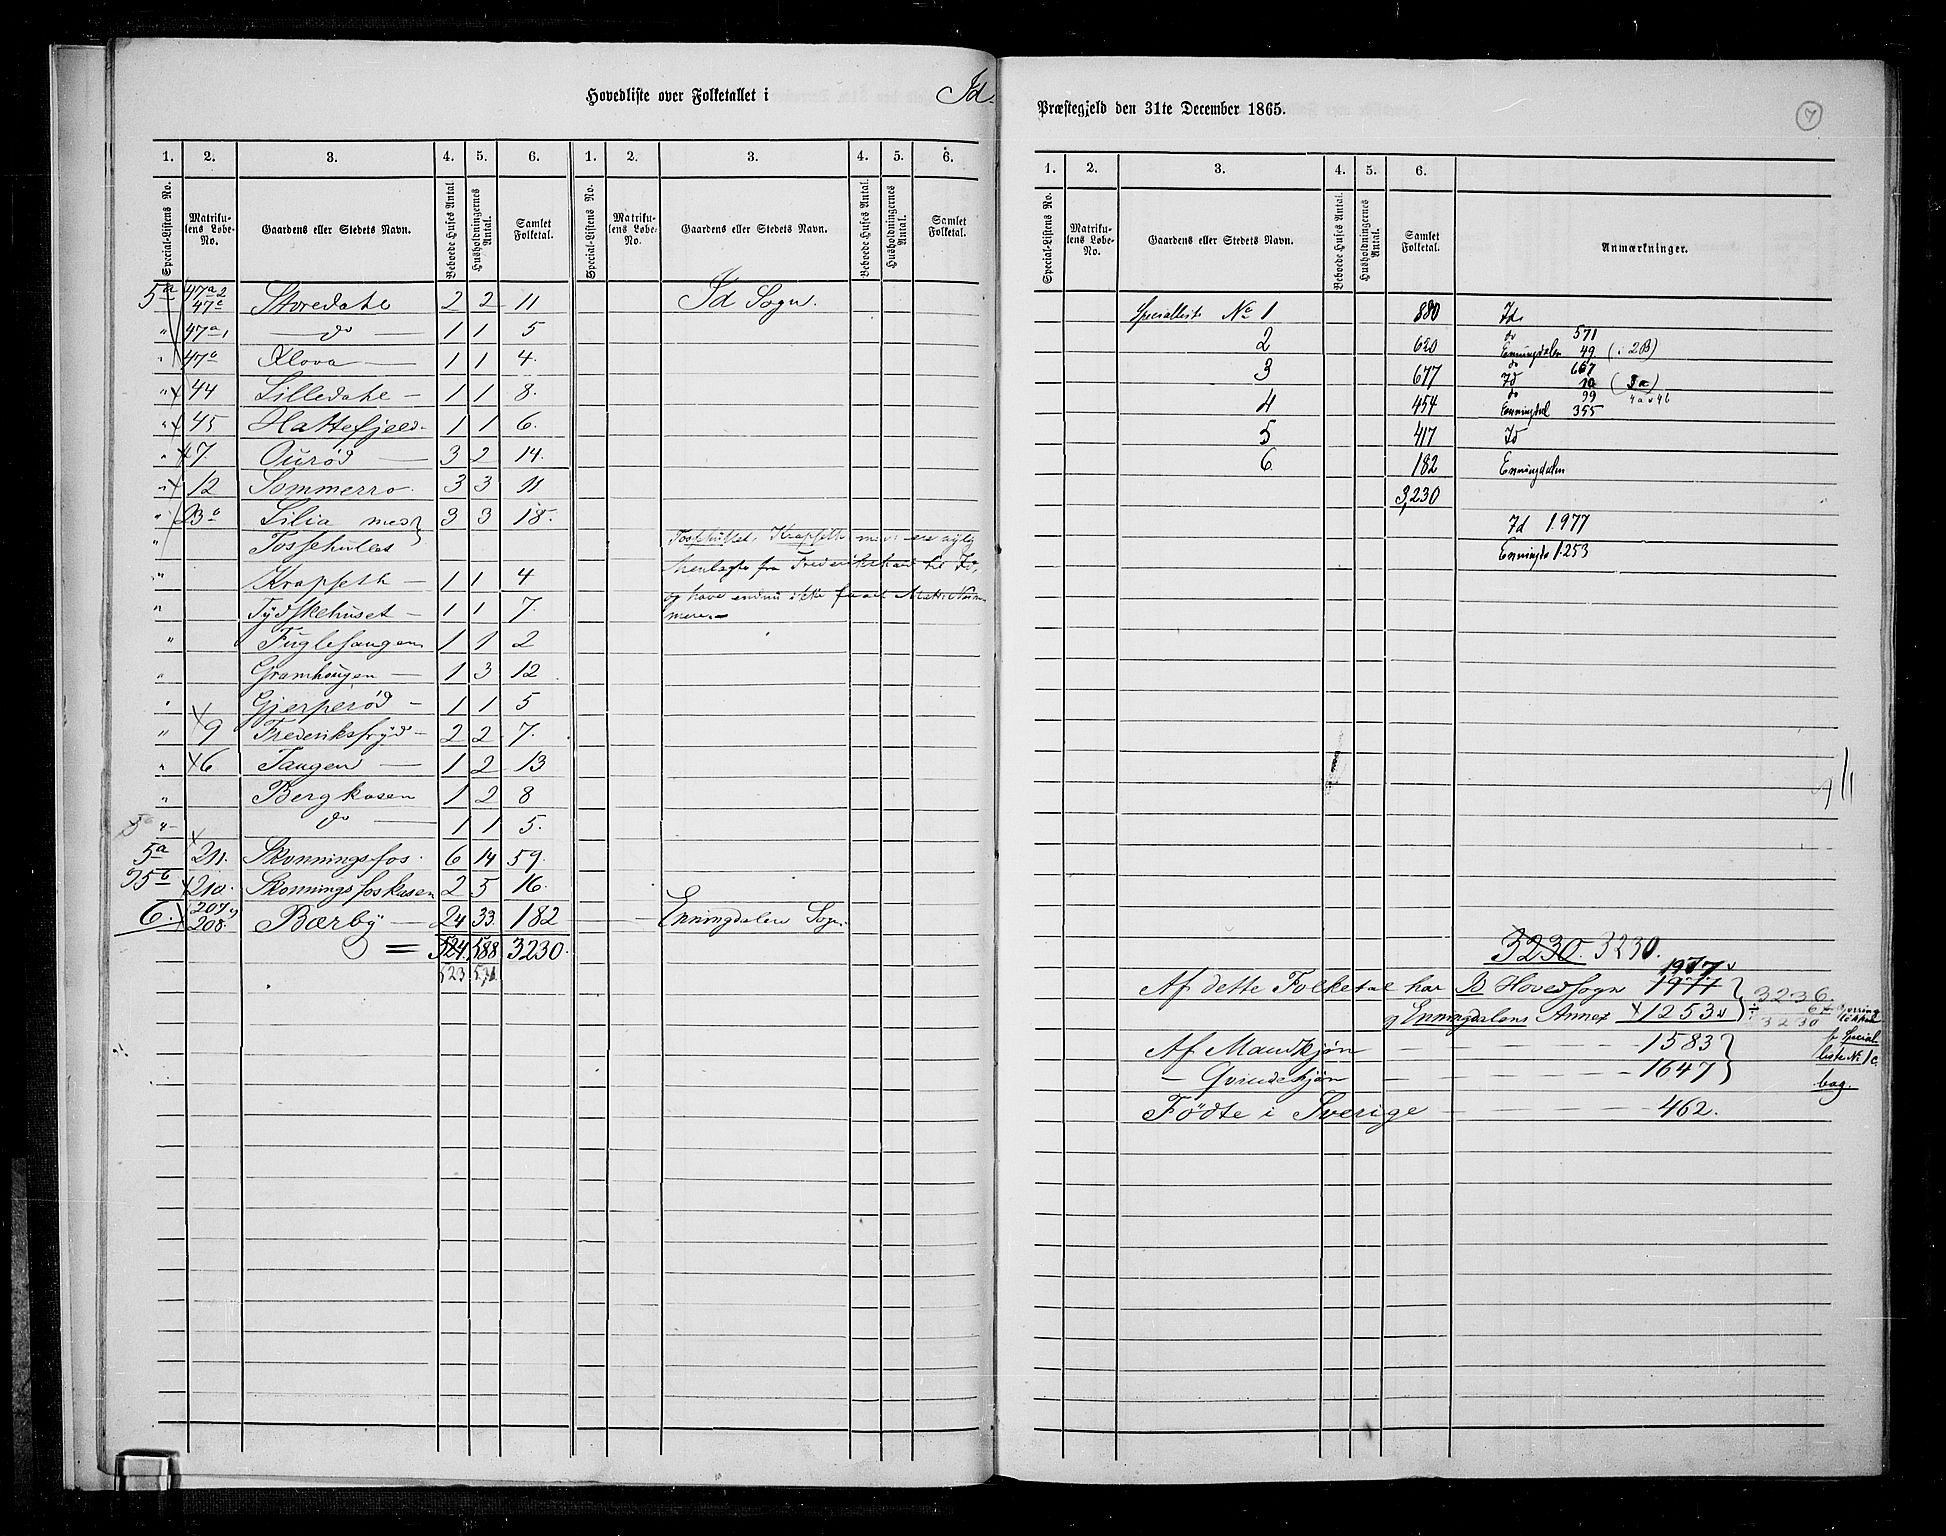 Hovedliste over Folketallet i Id
Præstegjeld den 31te December 1865.
7
1. 2. 3. 4. 5. 6. 1. 2. 3. 4. 5. 6.
Special-Listens No. Matrikulens Løbe-No. Gaardens eller Stedets Navn. Beboede Huses Antal. Husholdningernes Antal. Samlet Folketal. Special-Listens No. Matrikulens Løbe-No. Gaardens eller Stedets Navn. Beboede Huses Antal. Husholdningernes Antal. Samlet Folketal.
5a 47a2 47c Storedahl 2 2 11 Id Sogn.
" 47a1 — do — 1 1 5
" 47a Klova — 1 1 4.
" x 44 Lilledahl — 1 1 8.
" x 45 Hattefjeld — 1 1 6.
" x 7. Ourød — 3 2 14.
" x 12 Sommerro. 3 3 11
" 23a Lilia med 3 3 18.
" Tossehullet
" Krapfeth — 1 1 4
" Tydskehuset — 1 1 7.
" Fuglesangen 1 1 2
" Gramhougen — 1 3 12
" Gjerperød — 1 1 5
" x 9 Frederiksfryd — 2 2 7.
" x 6 Tangen — 1 2 13
" Bergkasen 1 2 8
" do — 1 1 5.
5a x 211. Skonningsfos. 6 14 59.
5b x 210. Skonningsfoskasen 2 5 16.
6. x 207 208. Bærby — 24 33 182 Enningdalen Sogn.
= 524. 588 3230.
523
Tossehullet, Krapfeth
fra Frederikshald til Id,
og have endnu ikke faaet Matr. Num-
mere. —
1. 2. 3. 4. 5. 6.
Special-Listens No. Matrikulens Løbe-No. Gaardens eller Stedets Navn. Beboede Huses Antal. Husholdningernes Antal. Samlet Folketal. Anmærkninger.
Specialliste No 1 880 Id.
2 620 do 571
Enningdalen 49 (: 2B)
3 677 do 667
Id 10 (3a)
4 454 do 99 4a 4b
Enningdal 355
5 417 Id
6 182 Enningdalen
3,230
Id 1.977
Enningd. 1.253
3230. 3230.
1977
Af dette Folketal har Id Hovedsogn 1977
og Enningdalens Annex x 1253
3236
6
3230
Af Mandkjøn — — — 1583
— Qvindekjøn — — — 1647
Fødte i Sverige — — — 462.
Special
liste No 1c
bag.